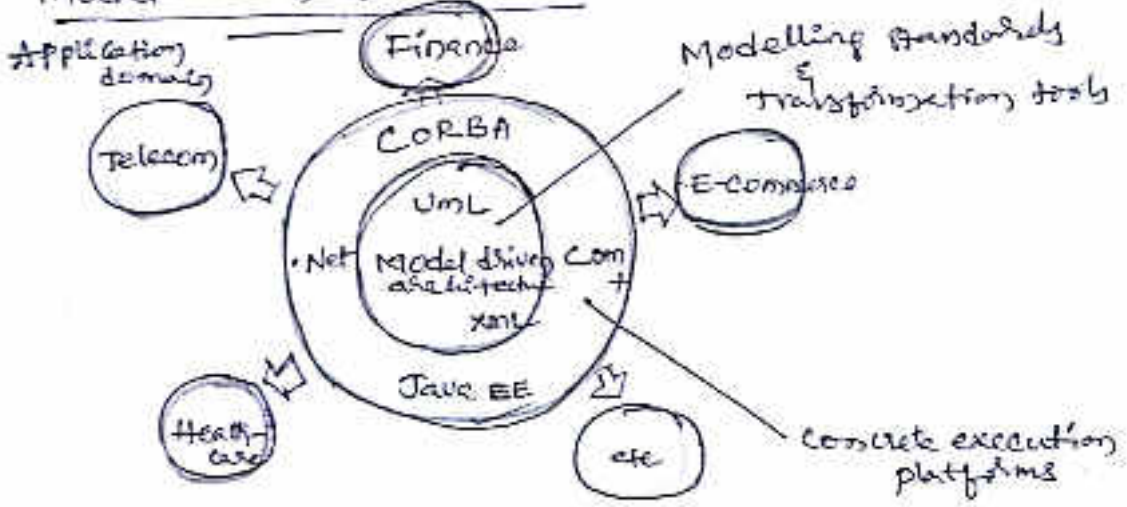 Application
domain
Finance
Modelling standards
&
transformation tools
Telecom
CORBA
E-Commerce
UML
.Net
Model driven
architectu
Com
+
XML
Java EE
Health-
care
etc
Concrete execution
platforms